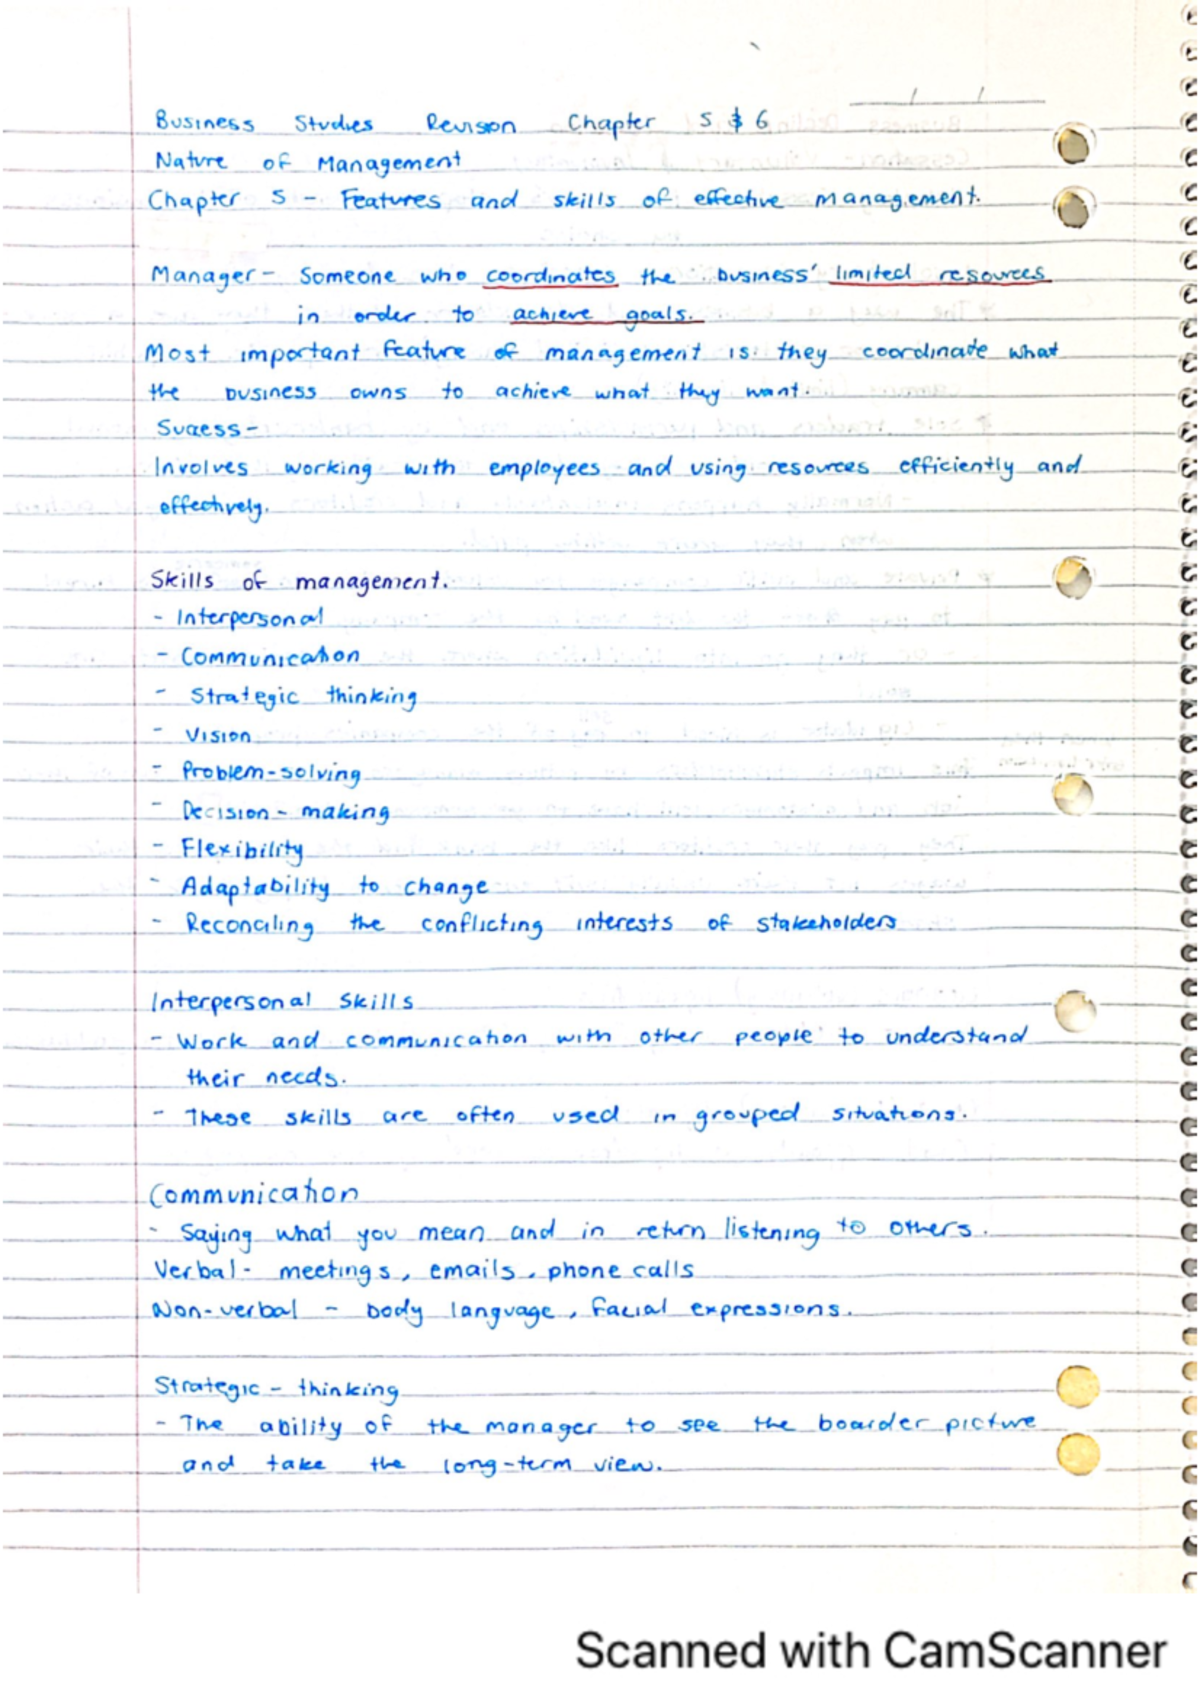 Business Studies Revision Chapter 5 & 6
Nature of Management
Chapter 5 - Features and skills of effective management.
Manager - Someone who coordinates the business' limited resources
in order to achieve goals.
Most important feature of management is: they coordinate what
the business owns to achieve what they want.
Success -
Involves working with employees and using resources efficiently and
effectively.
Skills of management.
- Interpersonal
- Communication
- Strategic thinking
- Vision
- Problem-solving
- Decision - making
- Flexibility
- Adaptability to change
- Reconciling the conflicting interests of stakeholders
Interpersonal Skills
- Work and communication with other people to understand
their needs.
- These skills are often used in grouped situations.
Communication
- Saying what you mean and in return listening to others.
Verbal - meetings, emails, phone calls
Non-verbal - body language, facial expressions.
Strategic - thinking
- The ability of the manager to see the boarder picture
and take the long-term view.
Scanned with CamScanner